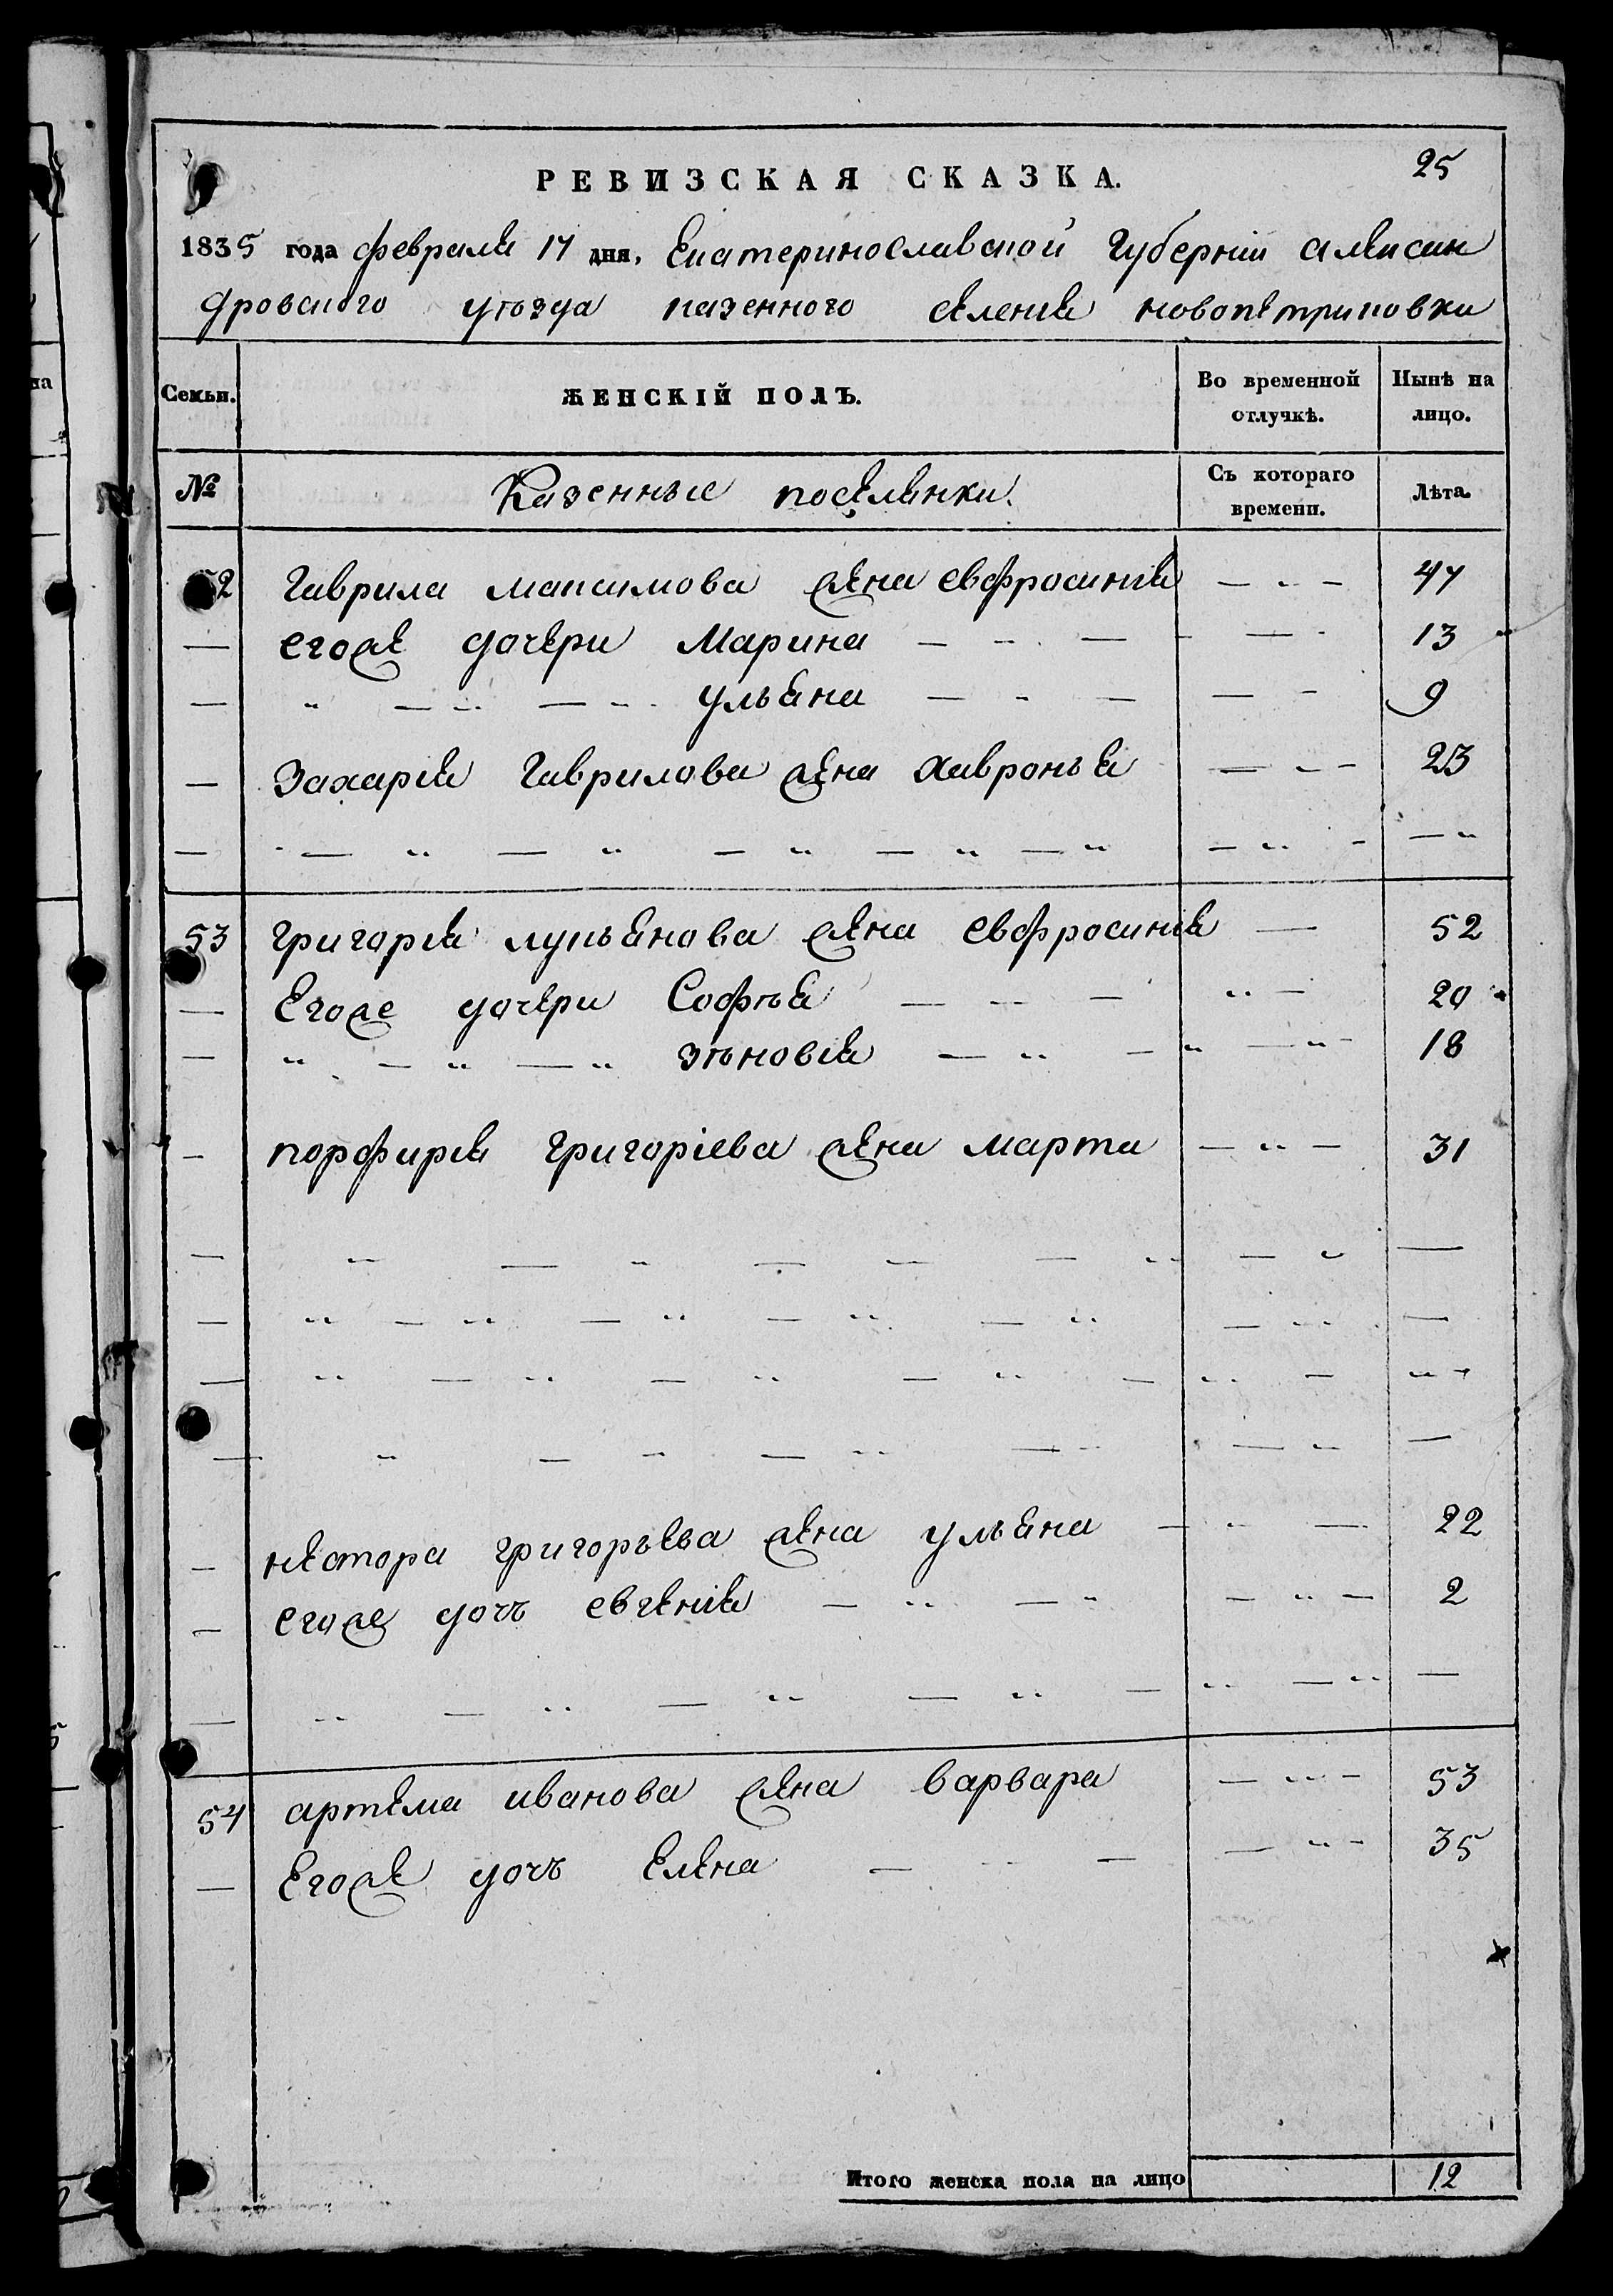 25
РЕВИЗСКАЯ СКАЗКА.
1835 года февраля 17 дня, Екатеринославской Губерніи Алексан
дровского уѣзда казенного селенія новопетриковки
Семьи. ЖЕНСКІЙ ПОЛЪ. Во временной отлучкѣ. Нынѣ на лицо.
№ Казенные поселянки. Съ котораго времени. Лѣта.
52 Гаврила максимова жена евфросинія 47
— егоже дочери Марина 13
— ульяна 9
— Захарія Гаврилова жена хавронья 23
53 григорія лукьянова жена евфросинія 52
— Егоже дочери Софѣя 20
— зѣновія 18
— порфирія григоріева жена марта 31
— нестора григорьева жена ульяна 22
— егоже дочъ евгенія 2
54 артема иванова жена варвара 53
— Егоже дочъ Елена 35
Итого женска пола на лицо 12